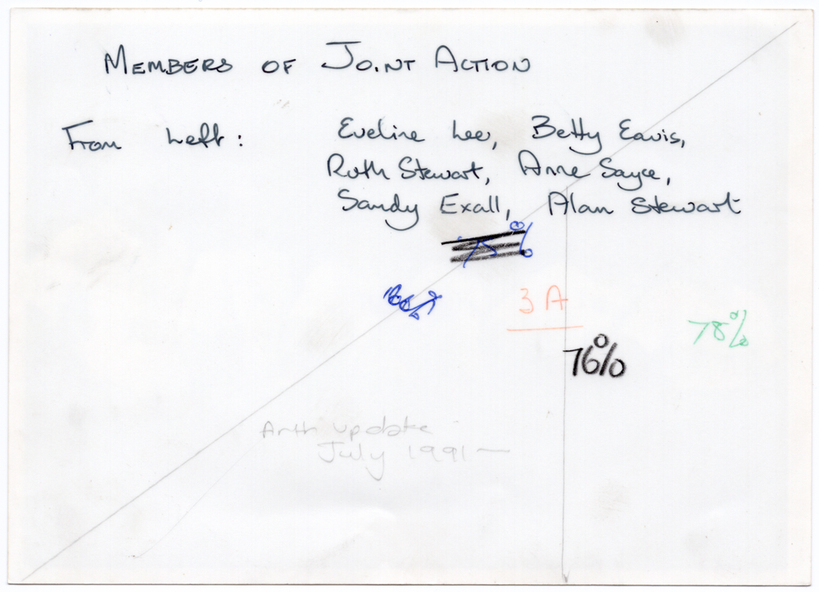 MEMBERS OF JOINT ACTION
From Left: Eveline Lee, Betty Eavis,
Ruth Stewart, Anne Sayce,
Sandy Exall, Alan Stewart
3A
78%
76%
Arth update
July 1991